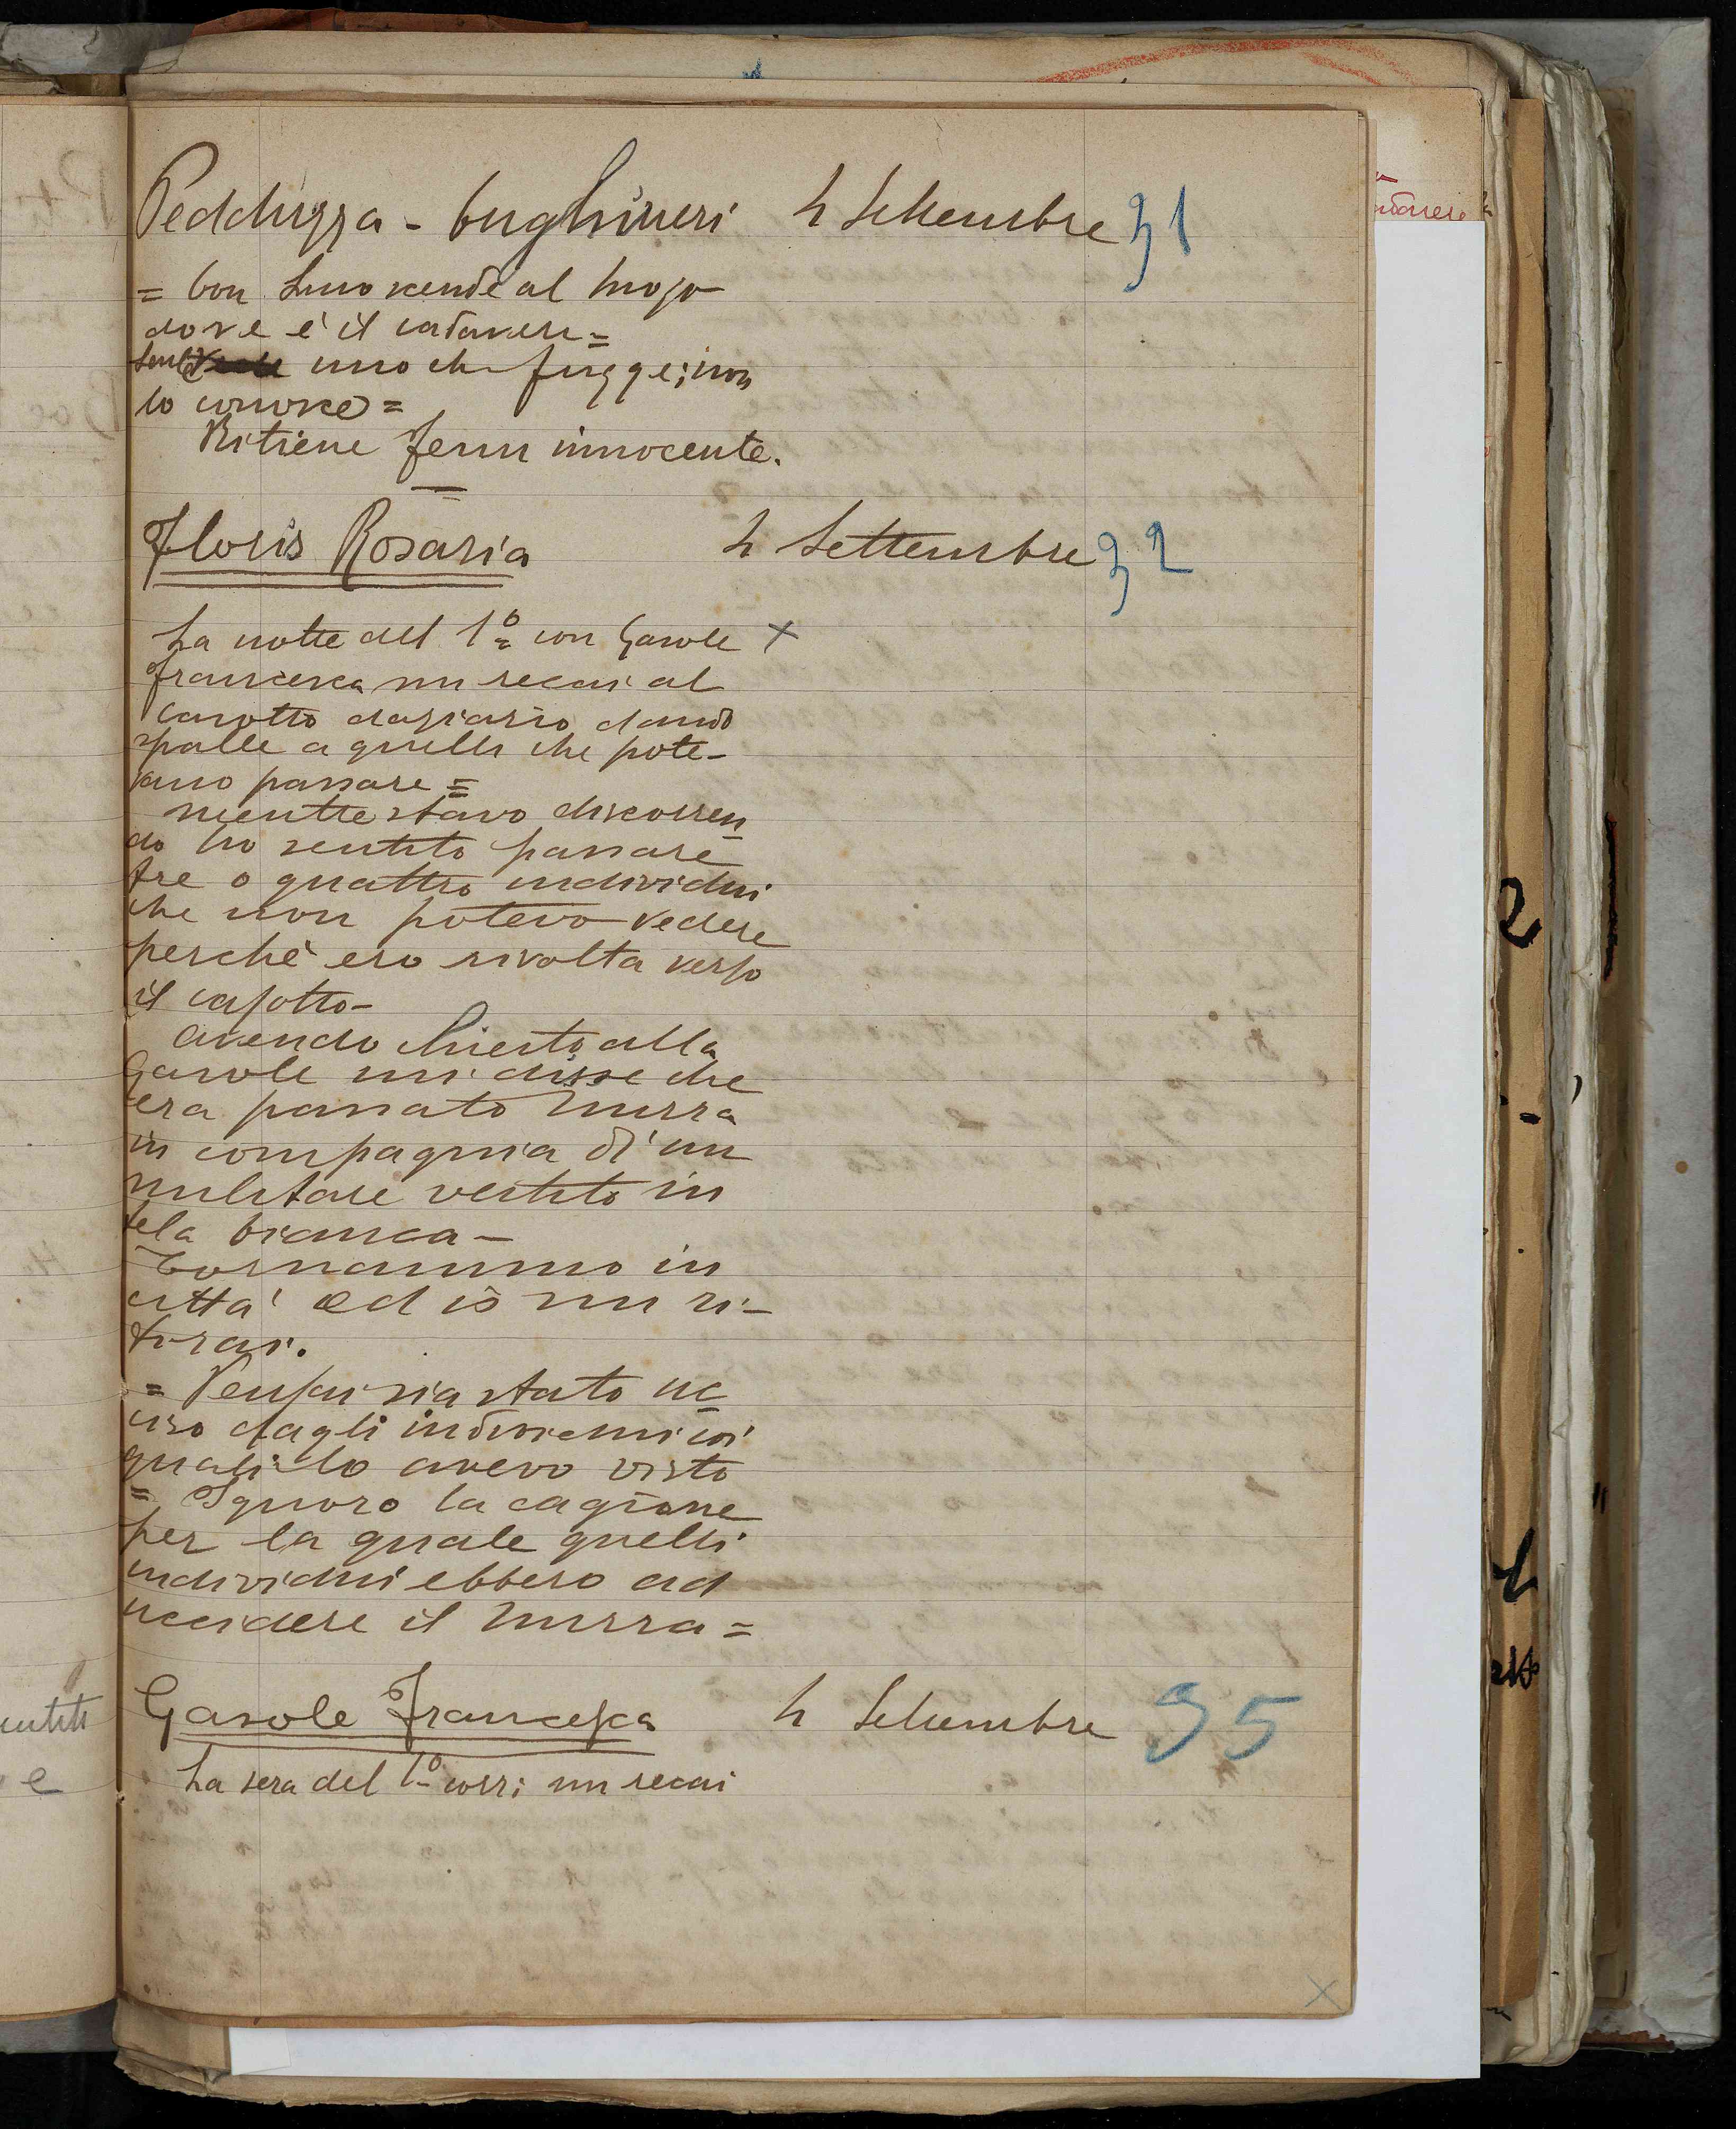 Pedduzza - Cughineri 4 Settembre 31
= Con Simo scende al luogo
dove è il cadavere =
sente uno che fugge; non
lo conosce =
Ritiene Fenu innocente.
Floris Rosaria 4 Settembre 32
La notte del 1° con Gasole ×
Francesca mi recai al
casotto daziario dando
spalle a quelli che pote-
vano passare =
mentre stavo discorren
do ho sentito passare
tre o quattro individui
che non potevo vedere
perchè ero rivolta verso
il casotto -
avendo chiesto alla
Gasole mi disse che
era passato Murra
in compagnia di un
militare vestito in
tela bianca -
Tornammo in
città ed io mi ri-
tirai.
= Pensai sia stato uc
ciso dagli individui coi
quali lo avevo visto
= Ignoro la cagione
per la quale quelli
individui ebbero ad
uccidere il Murra =
Gasole Francesca 4 Settembre 35
La sera del 1° corr: mi recai